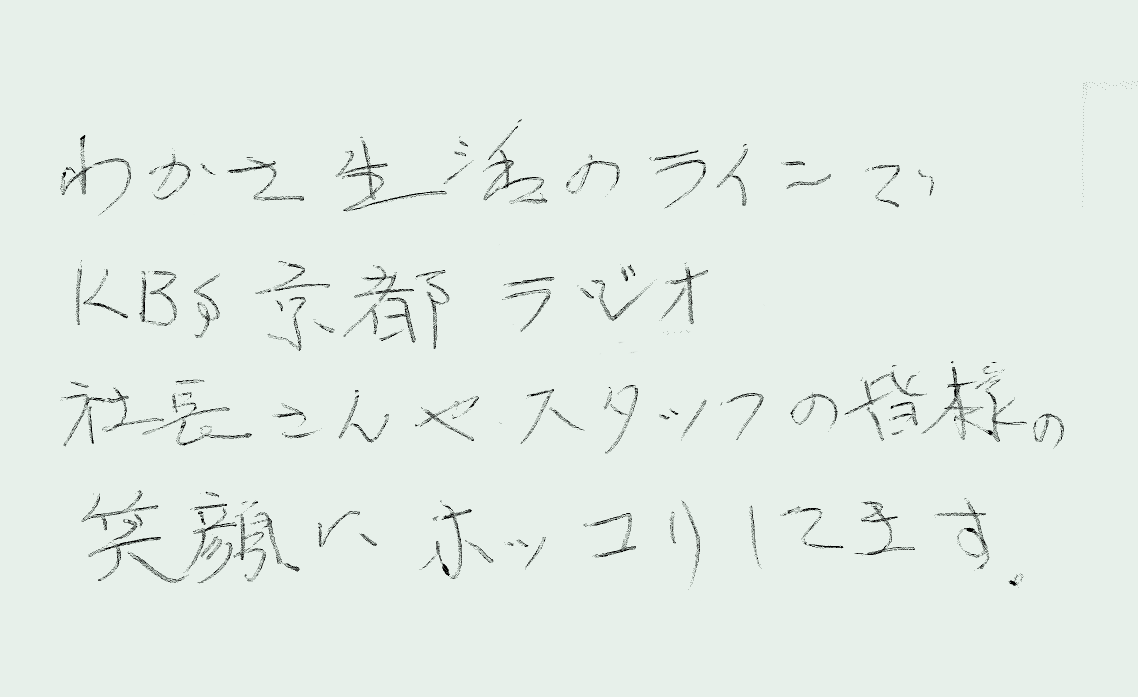 わかさ生活のラインで
KBS京都ラジオ
社長さんやスタッフの皆様の
笑顔にホッコリしてます.